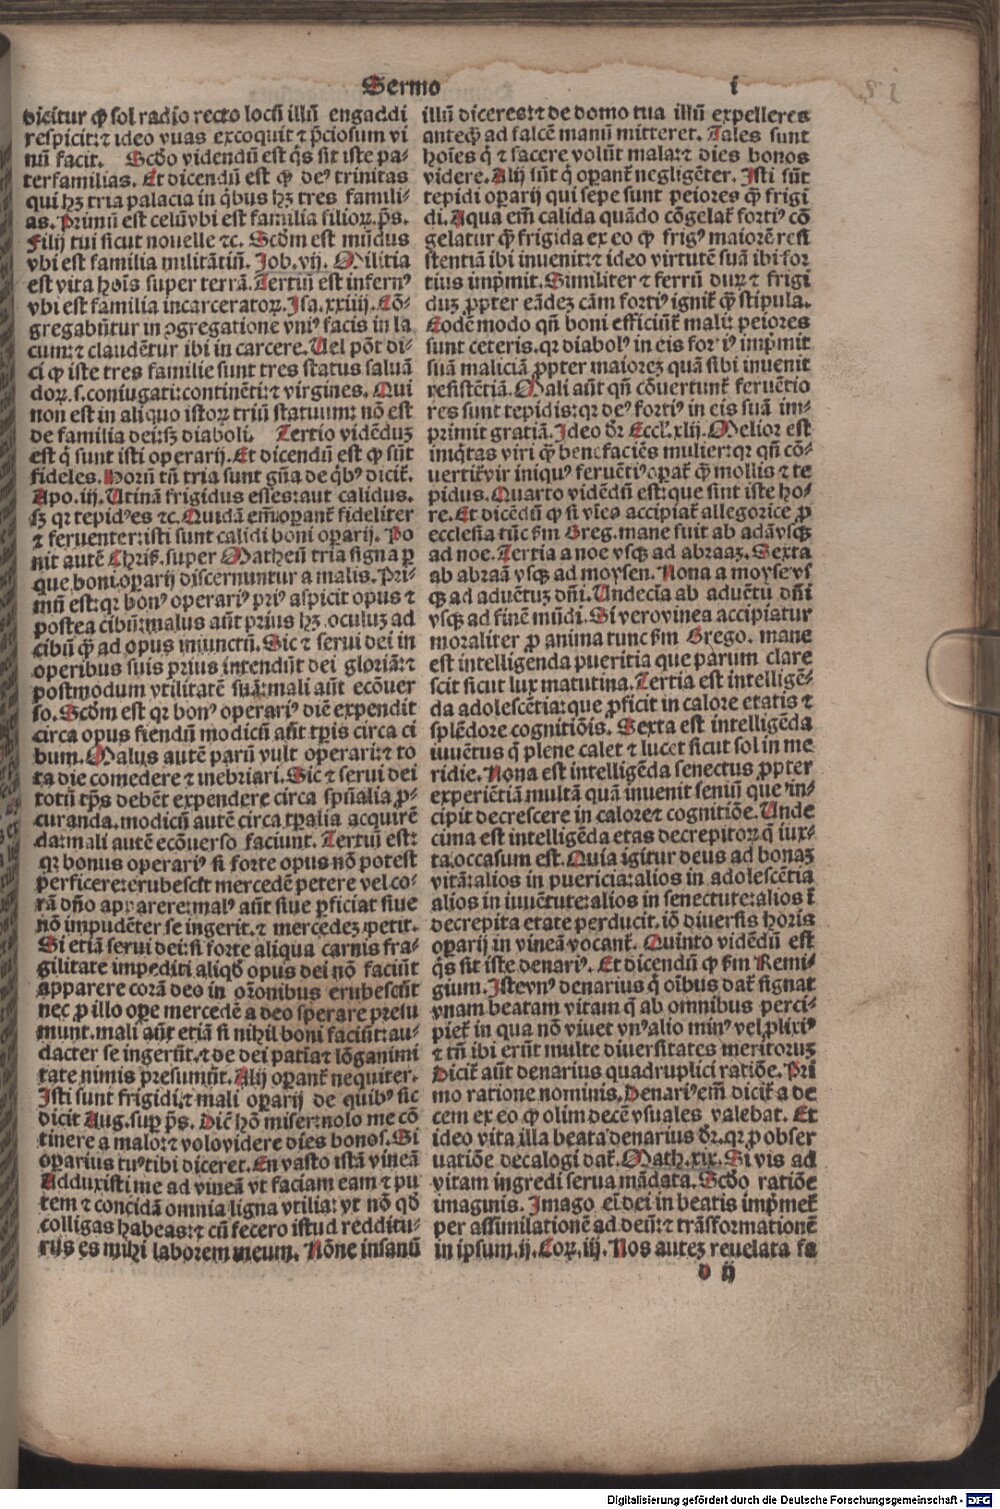 Sermo i
dicitur ꝙ sol radio recto locū illū engaddi
respicit: ⁊ ideo vuas excoquit ⁊ p̄ciosum vi
nū facit. Scd̓o videndū est q̇s sit iste pa-
terfamilias. Et dicendū est ꝙ deꝰ trinitas
qui hꝫ tria palacia in q̇bus hꝫ tres famili-
as. Primū est celū vbi est familia filioꝝ. p̄s.
Filij tui sicut nouelle ⁊c. Scd̓m est mūdus
vbi est familia militātiū. Job. vij. Militia
est vita hoīs super terrā. Tertiū est infernꝰ
vbi est familia incarceratoꝝ. Isa. xxiiij. Cō-
gregabūtur in ꝯgregatione vniꝰ facis in la
cum: ⁊ claudētur ibi in carcere. Uel pōt di-
ci ꝙ iste tres familie sunt tres status saluā
doꝝ. s. coniugati: continēti: ⁊ virgines. Qui
non est in aliquo istoꝝ triū statuum: nō est
de familia dei: sꝫ diaboli. Tertio vidēduꝫ
est q̇ sunt isti operarij. Et dicendū est ꝙ sūt
fideles. Horū tn̄ tria sunt gn̄a de q̇bꝰ dicit̄.
Apo. iij. Utinā frigidus esses: aut calidus.
sꝫ qꝛ tepidꝰ es ⁊c. Quidā em̄ oꝑant̄ fideliter
⁊ feruenter: isti sunt calidi boni oꝑarij. Po
nit autē Chris̄. super Matheū tria signa ꝑ
que boni oꝑarij discernuntur a malis. Pri-
mū est: qꝛ bonꝰ operariꝰ priꝰ aspicit opus ⁊
postea cibū: malus aūt prius hꝫ oculuꝫ ad
cibū ꝙ̄ ad opus iniunctū. Sic ⁊ serui dei in
operibus suis prius intendūt dei gloriā: ⁊
postmodum vtilitatē suā: mali aūt ecōuer
so. Scd̓m est qꝛ bonꝰ operariꝰ diē expendit
circa opus fiendū modicū aūt tꝑis circa ci
bum. Malus autē parū vult operari: ⁊ to
ta die comedere ⁊ inebriari. Sic ⁊ serui dei
totū tp̄s debēt expendere circa spūalia ꝓ-
curanda. modicū autē circa tꝑalia acquirē
da: mali autē ecōuerso faciunt. Tertiū est:
qꝛ bonus operariꝰ si forte opus nō potest
perficere: erubescit mercedē petere vel co-
rā dn̄o apparere: malꝰ aūt siue ꝑficiat siue
nō impudēter se ingerit. ⁊ mercedeꝫ petit.
Si etiā serui dei: si forte aliqua carnis fra-
gilitate impediti aliqd̓ opus dei nō faciūt
apparere corā deo in orōnibus erubescūt
nec ꝓ illo oꝑe mercedē a deo sperare presu
munt. mali aūt etiā si nihil boni faciūt: au-
dacter se ingerūt. ⁊ de dei patīa ⁊ lōganimi
tate nimis presumūt. Alij oꝑant̄ nequiter.
Isti sunt frigidi. ⁊ mali oꝑarij de quibꝰ sic
dicit Aug. suꝑ p̄s. Dic̄ hō miser: nolo me cō
tinere a malo: ⁊ volo videre dies bonos. Si
oꝑarius tuꝰ tibi diceret. En vasto istā vineā
Adduxisti me ad vineā vt faciam eam ⁊ pu
tem ⁊ concidā omnia ligna vtilia: vt nō qd̓
colligas habeas: ⁊ cū fecero istud redditu-
rus es mihi laborem meum. Nōne insanū
illū diceres: ⁊ de domo tua illū expelleres
anteqꝫ ad falcē manū mitteret. Tales sunt
hoīes q̇ ⁊ facere volūt mala: ⁊ dies bonos
videre. Alij sūt q̇ oꝑant̄ negligēter. Isti sūt
tepidi oꝑarij qui sepe sunt peiores ꝙ̄ frigi
di. Aqua em̄ calida quādo cōgelat̄ fortiꝰ cō
gelatur ꝙ̄ frigida ex eo ꝙ frigꝰ maiorē resi
stentiā ibi inuenit: ⁊ ideo virtutē suā ibi for
tius imp̄mit. Similiter ⁊ ferrū duꝝ ⁊ frigi
duꝫ ꝓpter eādeꝫ cām fortiꝰ ignit̄ ꝙ̄ stipula.
Eodē modo qn̄ boni efficiūt̄ mali: peiores
sunt ceteris. qꝛ diabolꝰ in eis fortiꝰ imp̄mit
suā maliciā ꝓpter maioreꝫ quā sibi inuenit
resistētiā. Mali aūt qn̄ cōuertunt̄ feruētio
res sunt tepidis: qꝛ deꝰ fortiꝰ in eis suā im-
primit gratiā. Ideo dr̄ Eccl̓. xlij. Melior est
iniq̇tas viri ꝙ̄ benefaciēs mulier: qꝛ qn̄ cō-
uertit̄ vir iniquꝰ feruētiꝰ oꝑat̄ ꝙ̄ mollis ⁊ te
pidus. Quarto vidēdū est: que sint iste ho-
re. Et dicēdū ꝙ si vīes accipiat̄ allegorice ꝓ
ecclesia tūc fm̄ Greg. mane fuit ab adā vsqꝫ
ad noe. Tertia a noe vsqꝫ ad abraaꝫ. Sexta
ab abraā vsqꝫ ad moysen. Nona a moyse vs
qꝫ ad aduētuꝫ dn̄i. Undecīa ab aduētu dn̄i
vsqꝫ ad finē mūdi. Si vero vinea accipiatur
moraliter ꝓ anima tunc fm̄ Grego. mane
est intelligenda pueritia que parum clare
scit sicut lux matutina. Tertia est intelligē-
da adolescētia: que ꝓficit in calore etatis ⁊
splēdore cognitiōis. Sexta est intelligēda
iuuētus q̇ plene calet ⁊ lucet sicut sol in me
ridie. Nona est intelligēda senectus ꝓpter
experiētiā multā quā inuenit seniū que in-
cipit decrescere in calore ⁊ cognitiōe. Unde
cima est intelligēda etas decrepitoꝝ q̄ iux-
ta occasum est. Quia igitur deus ad bonaꝫ
vitā: alios in puericia: alios in adolescētia
alios in iuuētute: alios in senectute: alios ī
decrepita etate perducit. iō diuersis horis
oꝑarij in vineā vocant̄. Quinto vidēdū est
q̇s sit iste denariꝰ. Et dicendū ꝙ fm̄ Remi-
gium. Iste vnꝰ denarius q̇ oībus dat̄ signat
vnam beatam vitam q̄ ab omnibus perci-
piet̄ in qua nō viuet vnꝰ alio minꝰ vel ꝓlixiꝰ
⁊ tn̄ ibi erūt multe diuersitates meritoruꝫ
Dicit̄ aūt denarius quadruplici ratiōe. Pri
mo ratione nominis. Denariꝰ em̄ dicit̄ a de
cem ex eo ꝙ olim decē vsuales valebat. Et
ideo vita illa beata denarius dr̄. qꝛ ꝓ obser
uatiōe decalogi dat̄. Math. xix. Si vis ad
vitam ingredi serua mādata. Scd̓o ratiōe
imaginis. Imago em̄ dei in beatis imp̄met̄
per assimilationē ad deū: ⁊ trāsformationē
in ipsum. ij. Coꝝ. iij. Nos auteꝫ reuelata fa
o ij
Digitalisierung gefördert durch die Deutsche Forschungsgemeinschaft - DFG